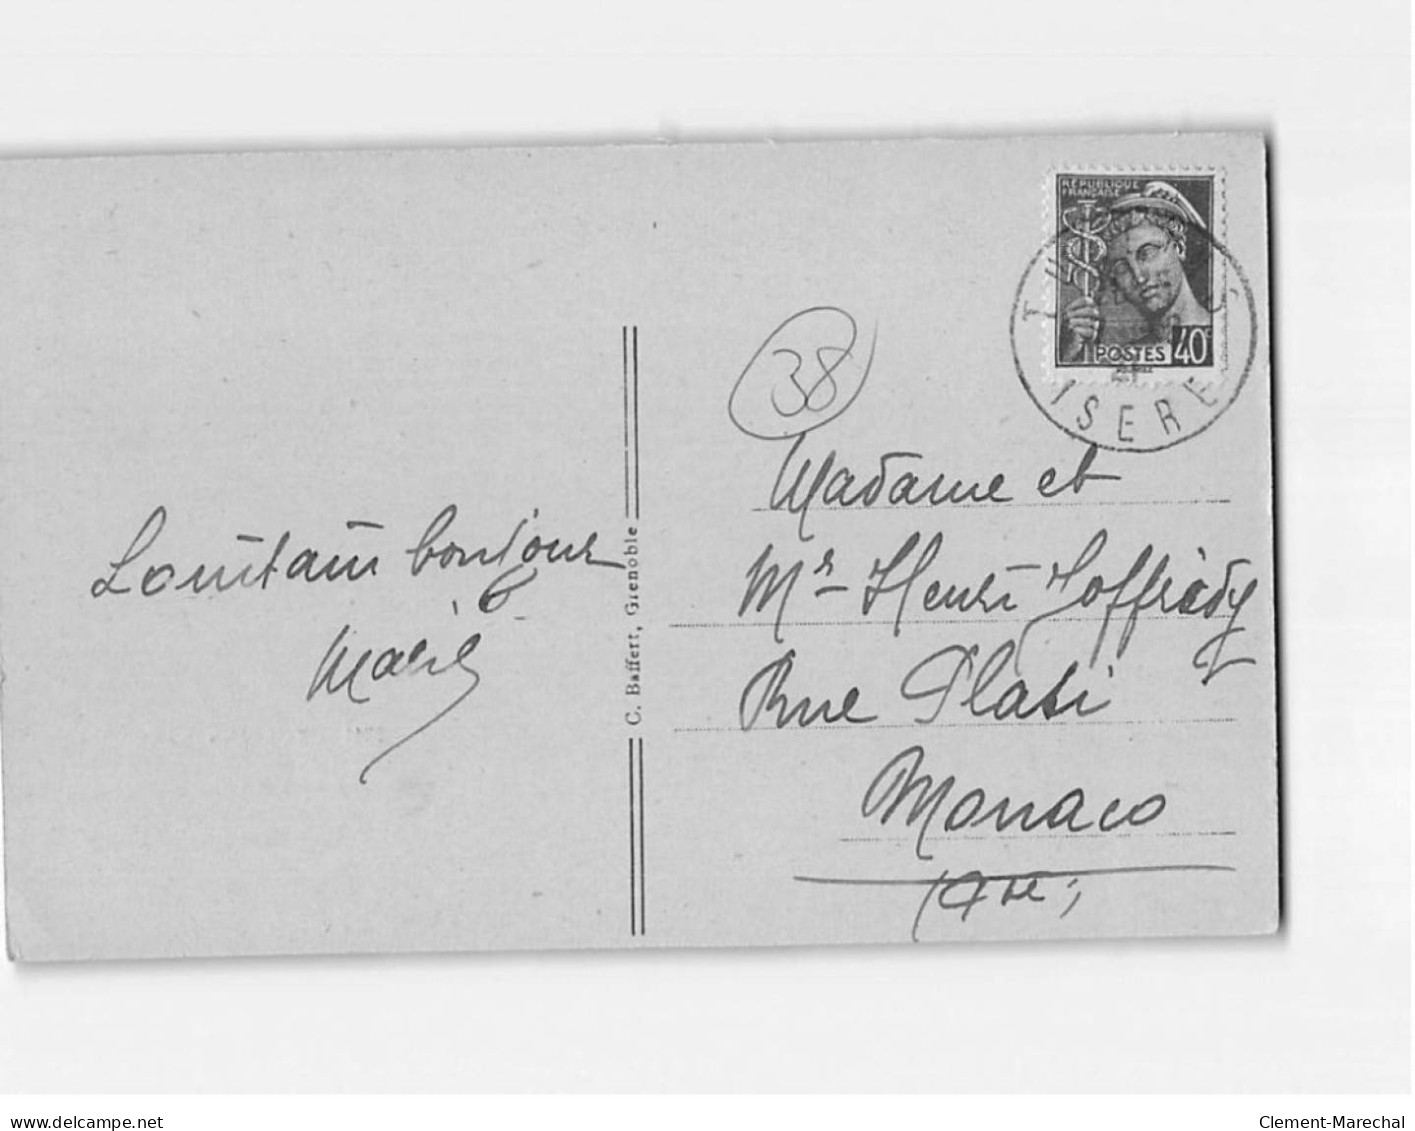 RÉPUBLIQUE
FRANÇAISE
POSTES 40c
ISERE
38
Lointain bonjour
Marie
C. Baffert, Grenoble
Madame et
Mr Henri Joffrédy
Rue Plati
Monaco
www.delcampe.net
Clement-Marechal